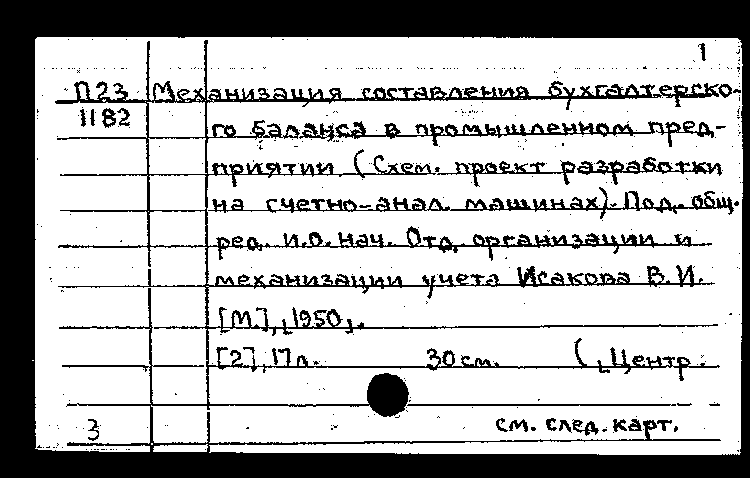 1
П23 Механизация составления бухгалтерско-
1182
го баланса в промышленном пред-
приятии (Схем. проект разработки
на счетно-анал. машинах). Под. общ.
ред. и.о. нач. Отд. организации и
механизации учета Исакова В.И.
[М.], ⌊1950⌋.
[2], 17 л. 30 см. (⌊Центр.
3 см. след. карт.